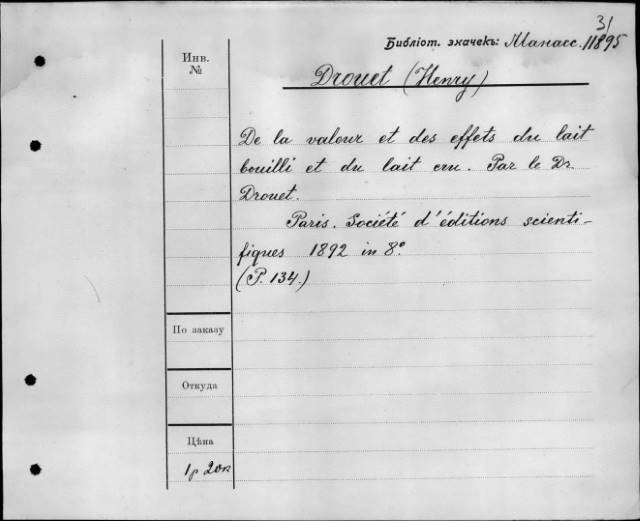 31
Библіот. значекъ: Манасс. 11895
Инв.
№
Drouet (Henry)
De la valeur et des effets du lait
bouilli et du lait cru. Par le Dr.
Drouet.
Paris. Société d'éditions scienti-
fiques 1892 in 8º.
(P. 134.)
По заказу
Откуда
Цѣна
1 р 20 к